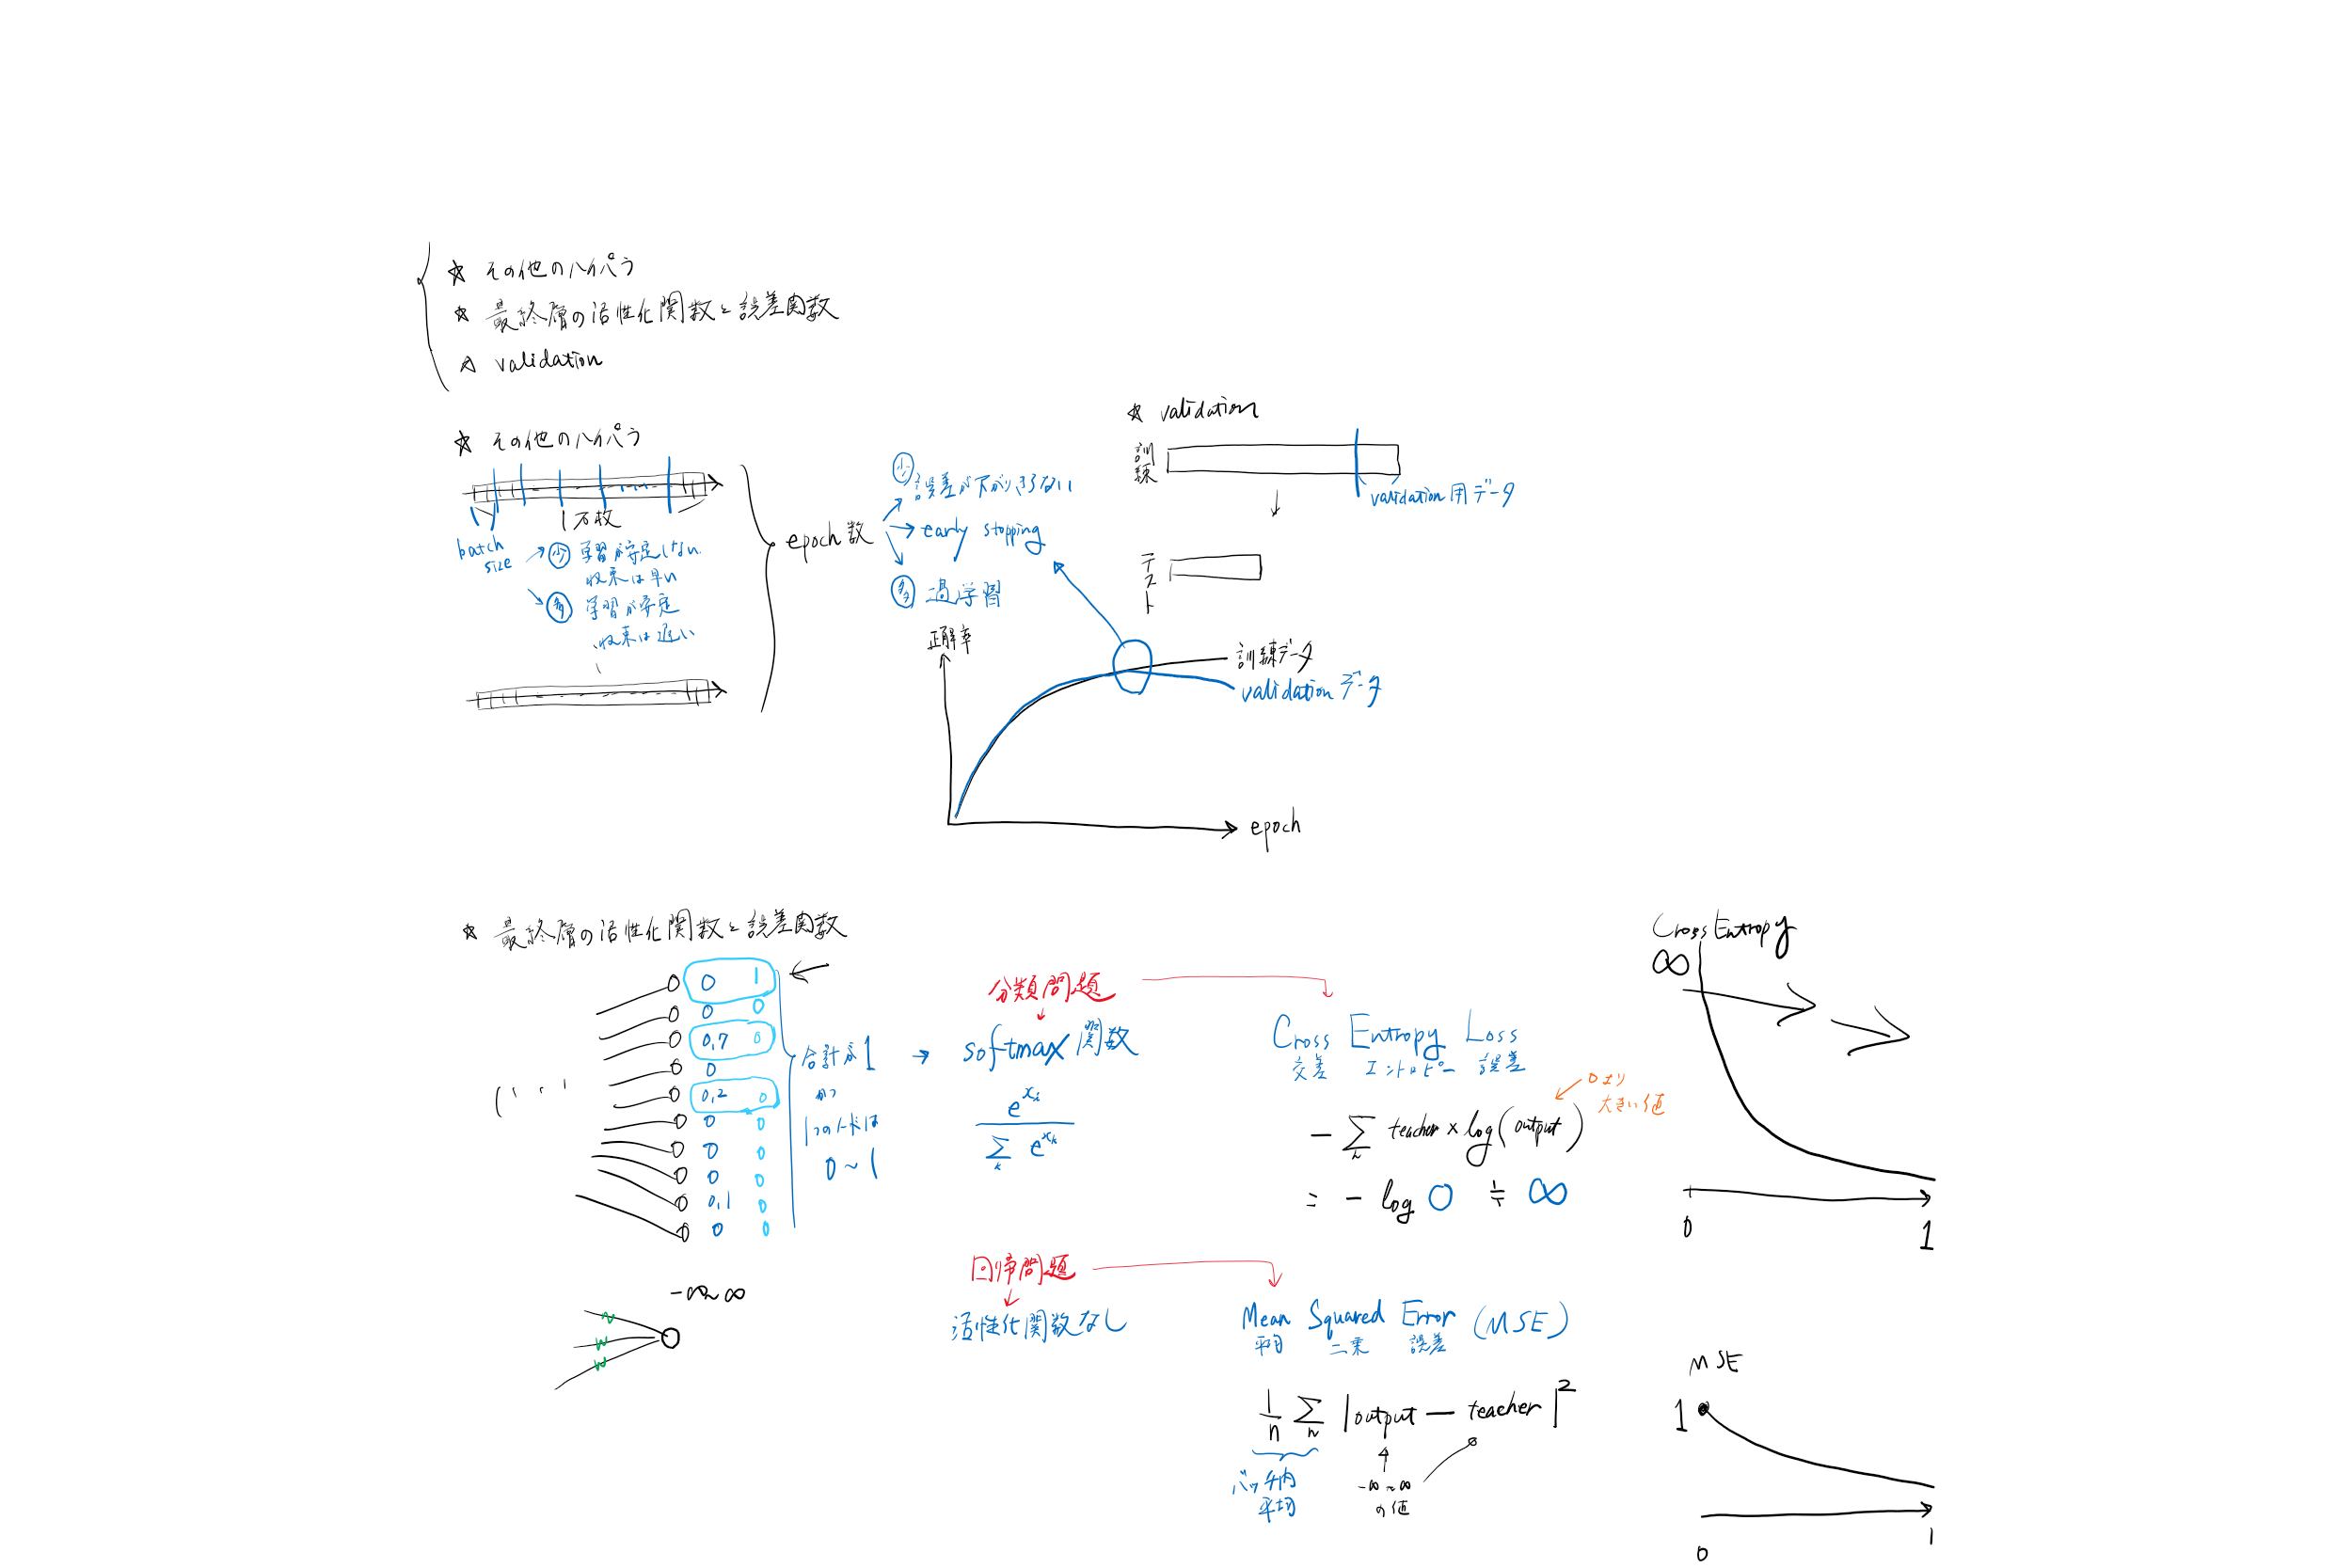 ☆ その他のハイパラ
☆ 最終層の活性化関数と誤差関数
☆ validation
☆ その他のハイパラ
1万枚
batch size
少 学習が安定しない
収束は早い
多 学習が安定
収束は遅い
epoch数
少 誤差が下がりきらない
early stopping
多 過学習
☆ validation
訓練
validation用データ
テスト
正解率
訓練データ
validationデータ
epoch
☆ 最終層の活性化関数と誤差関数
0 1
0 0
0,7 0
0
0,2 0
0 0
0 0
0 0
0,1 0
0 0
合計が1
かつ
1つのノードは
0~1
分類問題
softmax関数
e^{x_i}
Σ_k e^{x_k}
Cross Entropy Loss
交差 エントロピー 誤差
0より
大きい値
- Σ_n teacher × log(output)
= - log 0 ≒ ∞
Cross Entropy
∞
0 1
-∞~∞
w
w
w
回帰問題
活性化関数なし
Mean Squared Error (MSE)
平均 二乗 誤差
1/n Σ_n |output - teacher|^2
バッチ内
平均
-∞~∞
の値
MSE
1
0 1